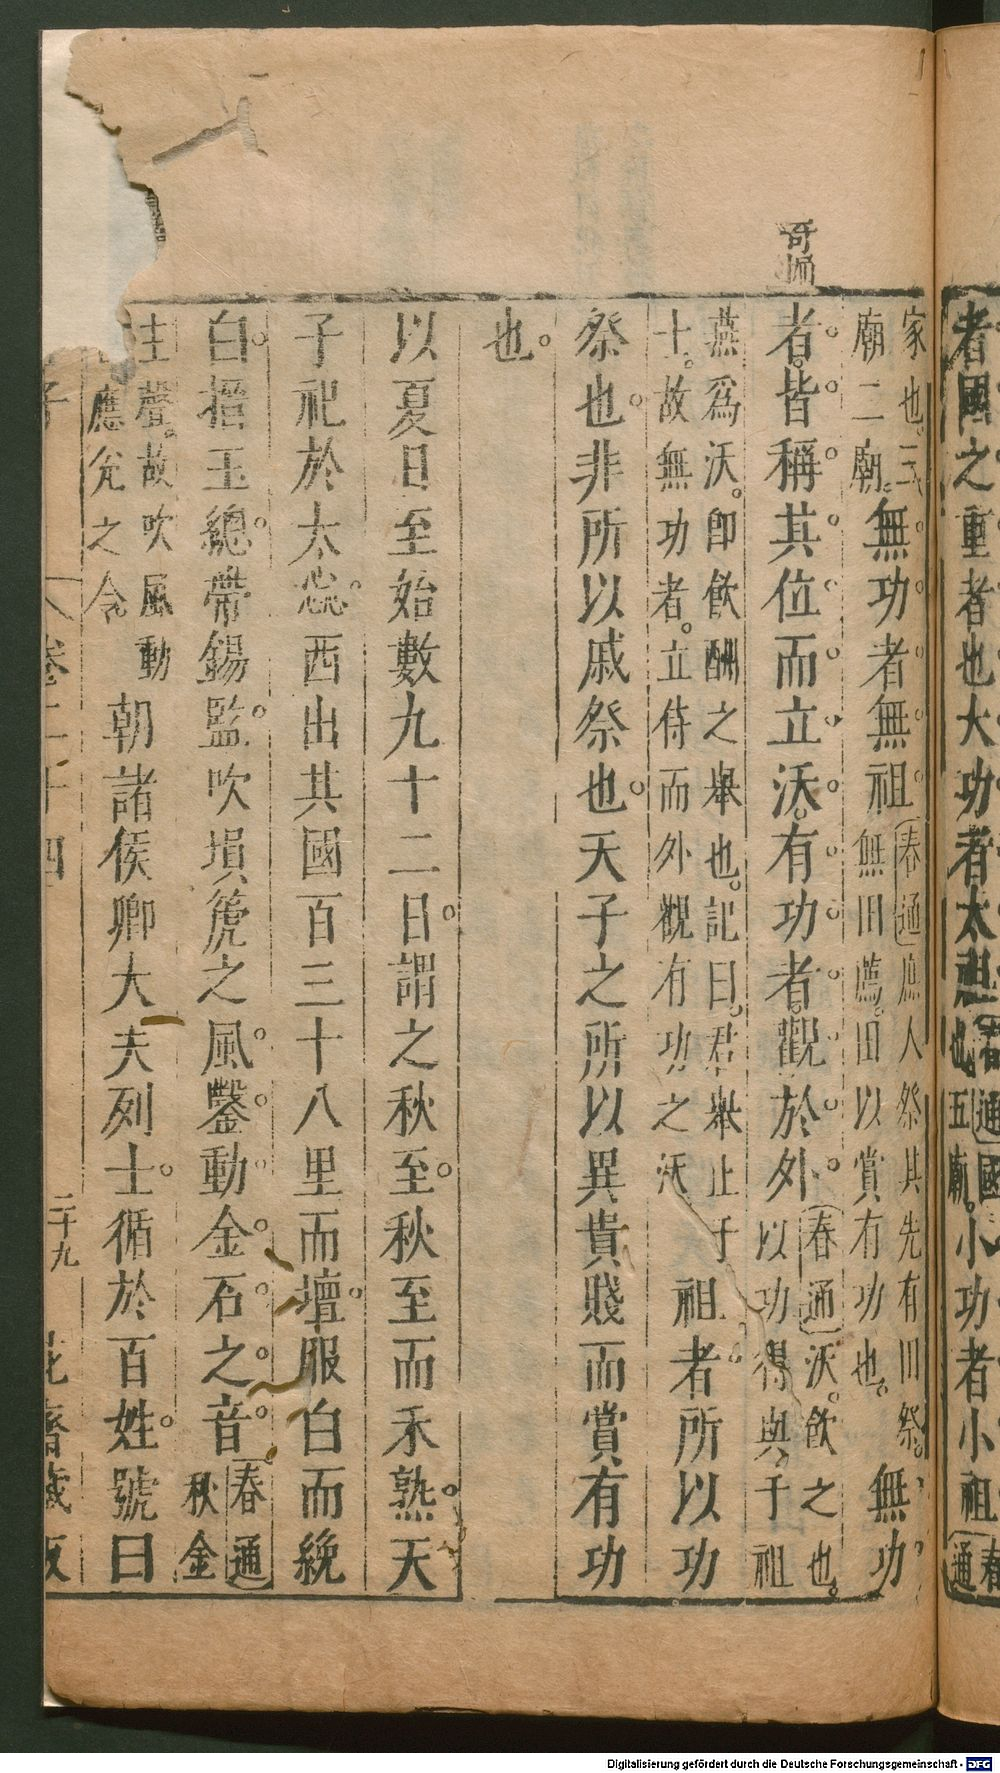 者國之重者也大功者太祖春通也五廟國小功者小祖春通
家也三廟二廟無功者無祖春通庶人祭其先有旧祭無旧薦旧以賞有功也無功
奇峭
者皆稱其位而立沃有功者觀於外春通沃飲之也以功得與于祖
燕爲沃卽飲酬之舉也記曰君舉止于士故無功者立侍而外觀有功之沃祖者所以功
祭也非所以戚祭也天子之所以異貴賤而賞有功
也
以夏日至始數九十二日謂之秋至秋至而禾熟天
子祀於太惢西出其國百三十八里而壇服白而絻
白搢玉總帶錫監吹壎篪之風鑿動金石之音春通秋金
主聲故吹風動應兊之令朝諸侯卿大夫列士循於百姓號曰
子 卷二十四 二十九 花齋藏板
Digitalisierung gefördert durch die Deutsche Forschungsgemeinschaft - DFG